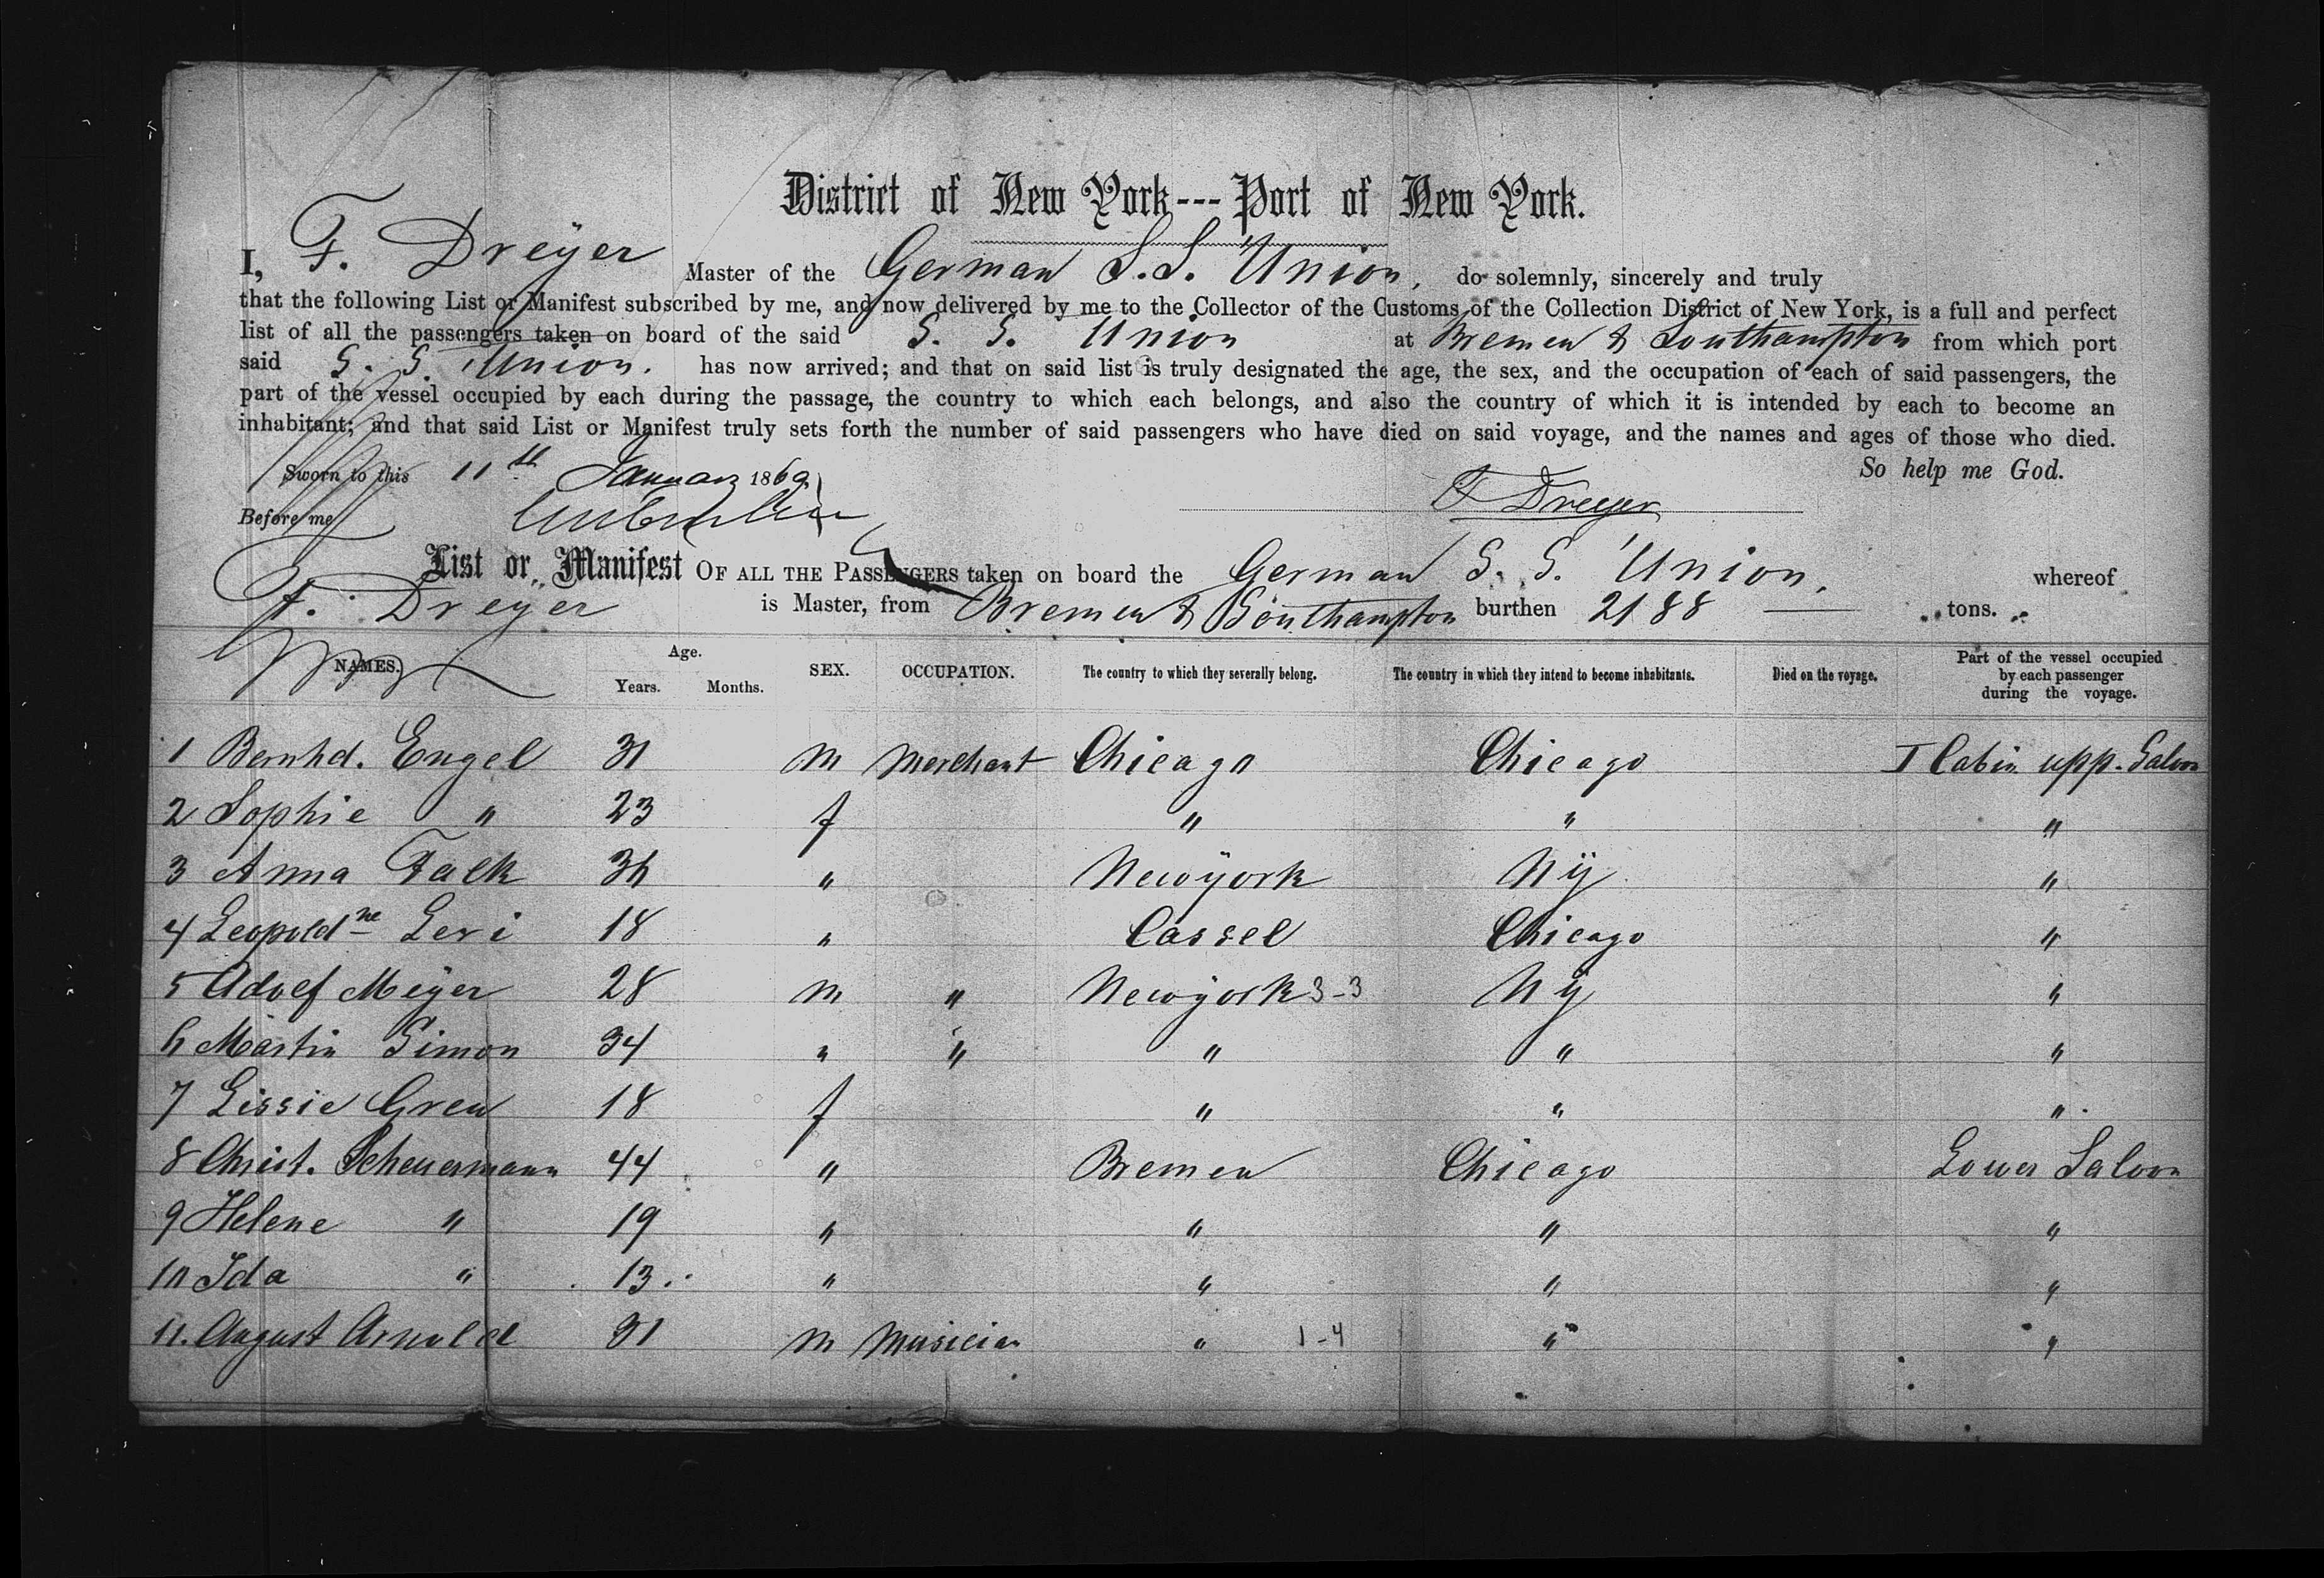 District of New York---Port of New York.
I, F. Dreyer Master of the German S.S. "Union, do solemnly, sincerely and truly
that the following List or Manifest subscribed by me, and now delivered by me to the Collector of the Customs of the Collection District of New York, is a full and perfect
list of all the passengers taken on board of the said S. S. Union at Bremen & Southampton from which port
said S. S. "Union. has now arrived; and that on said list is truly designated the age, the sex, and the occupation of each of said passengers, the
part of the vessel occupied by each during the passage, the country to which each belongs, and also the country of which it is intended by each to become an
inhabitant; and that said List or Manifest truly sets forth the number of said passengers who have died on said voyage, and the names and ages of those who died.
So help me God.
Sworn to this 11th January 1869
F Dreyer
Before me
List or Manifest OF ALL THE PASSENGERS taken on board the German S. S. 'Union, whereof
F. Dreyer is Master, from Bremen & Southampton burthen 2188 — tons.
NAMES. Age. Years. Months. SEX. OCCUPATION. The country to which they severally belong. The country in which they intend to become inhabitants. Died on the voyage. Part of the vessel occupied by each passenger during the voyage.
1 Bernhd. Engel 31 m Merchant Chicago Chicago I Cabin upp. Saloon
2 Sophie " 23 f " " "
3 Anna Falk 36 " Newyork Ny "
4 Leopoldne Levi 18 " Cassel Chicago "
5 Adolf Meyer 28 m " Newyork 3-3 Ny "
6 Martin Simon 34 " " " " "
7 Lissie Grew 18 f " " "
8 Christ. Scheuermann 44 " Bremen Chicago Lower Saloon
9 Helene " 19 " " " "
10 Ida " 13 " " " "
11. August Arnold 31 m Musician " 1-4 " "